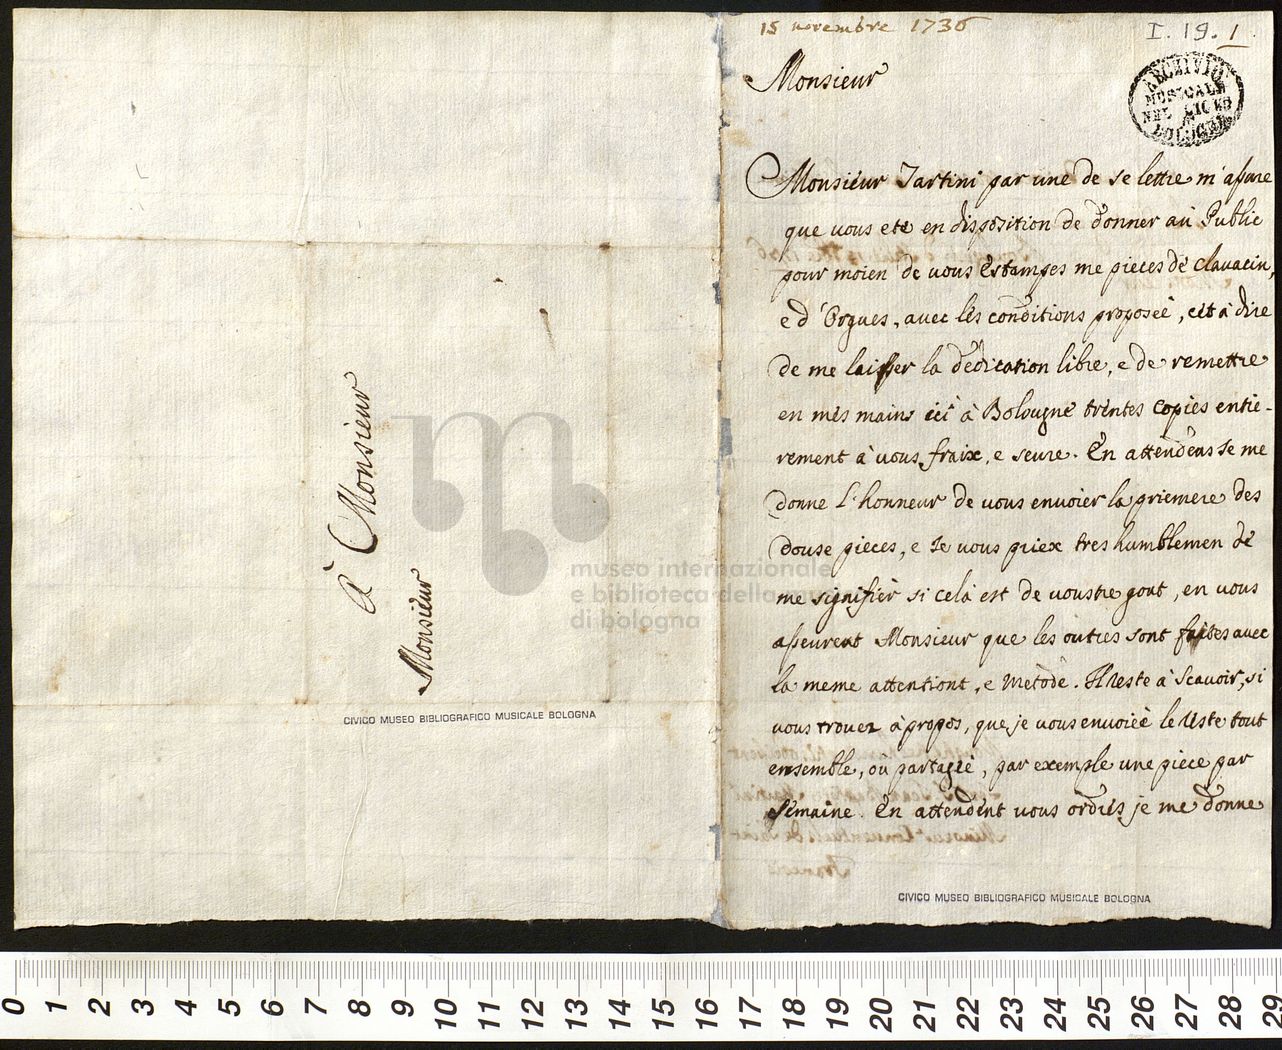 à Monsieur
Monsieur
CIVICO MUSEO BIBLIOGRAFICO MUSICALE BOLOGNA
museo internazionale
e biblioteca della
di bologna
15 novembre 1736
I. 19. 1
ARCHIVIO
MUSICALE
NEL LICEO
BOLOGNA
Monsieur
Monsieur Tartini par une de se lettre m'assure
que vous etè en disposition de donner au Public
pour moien de vous Estampes me pieces de clavacin,
e d'Orgues, avec les conditions proposeè, cèt à dire
de me laisser la dedication libre, e de remettre
en mes mains ici à Bolougne trentes copies entie-
rement à vous fraix, e seure. En attendeas Je me
donne l'honneur de vous envoier la priemere des
douse pieces, e Je vous priex tres humblemen de
me signifièr si celà est de voustre gout, en vous
asseurent Monsieur que les outres sont faites avec
la meme attentiont, e metode. Il reste à Scavoir, si
vous trouez à propos, que je vous envoieè le reste tout
ensemble, ou partageè, par exemple une piece par
Semaine. En attendent vous ordres je me donne
CIVICO MUSEO BIBLIOGRAFICO MUSICALE BOLOGNA
0 1 2 3 4 5 6 7 8 9 10 11 12 13 14 15 16 17 18 19 20 21 22 23 24 25 26 27 28 29